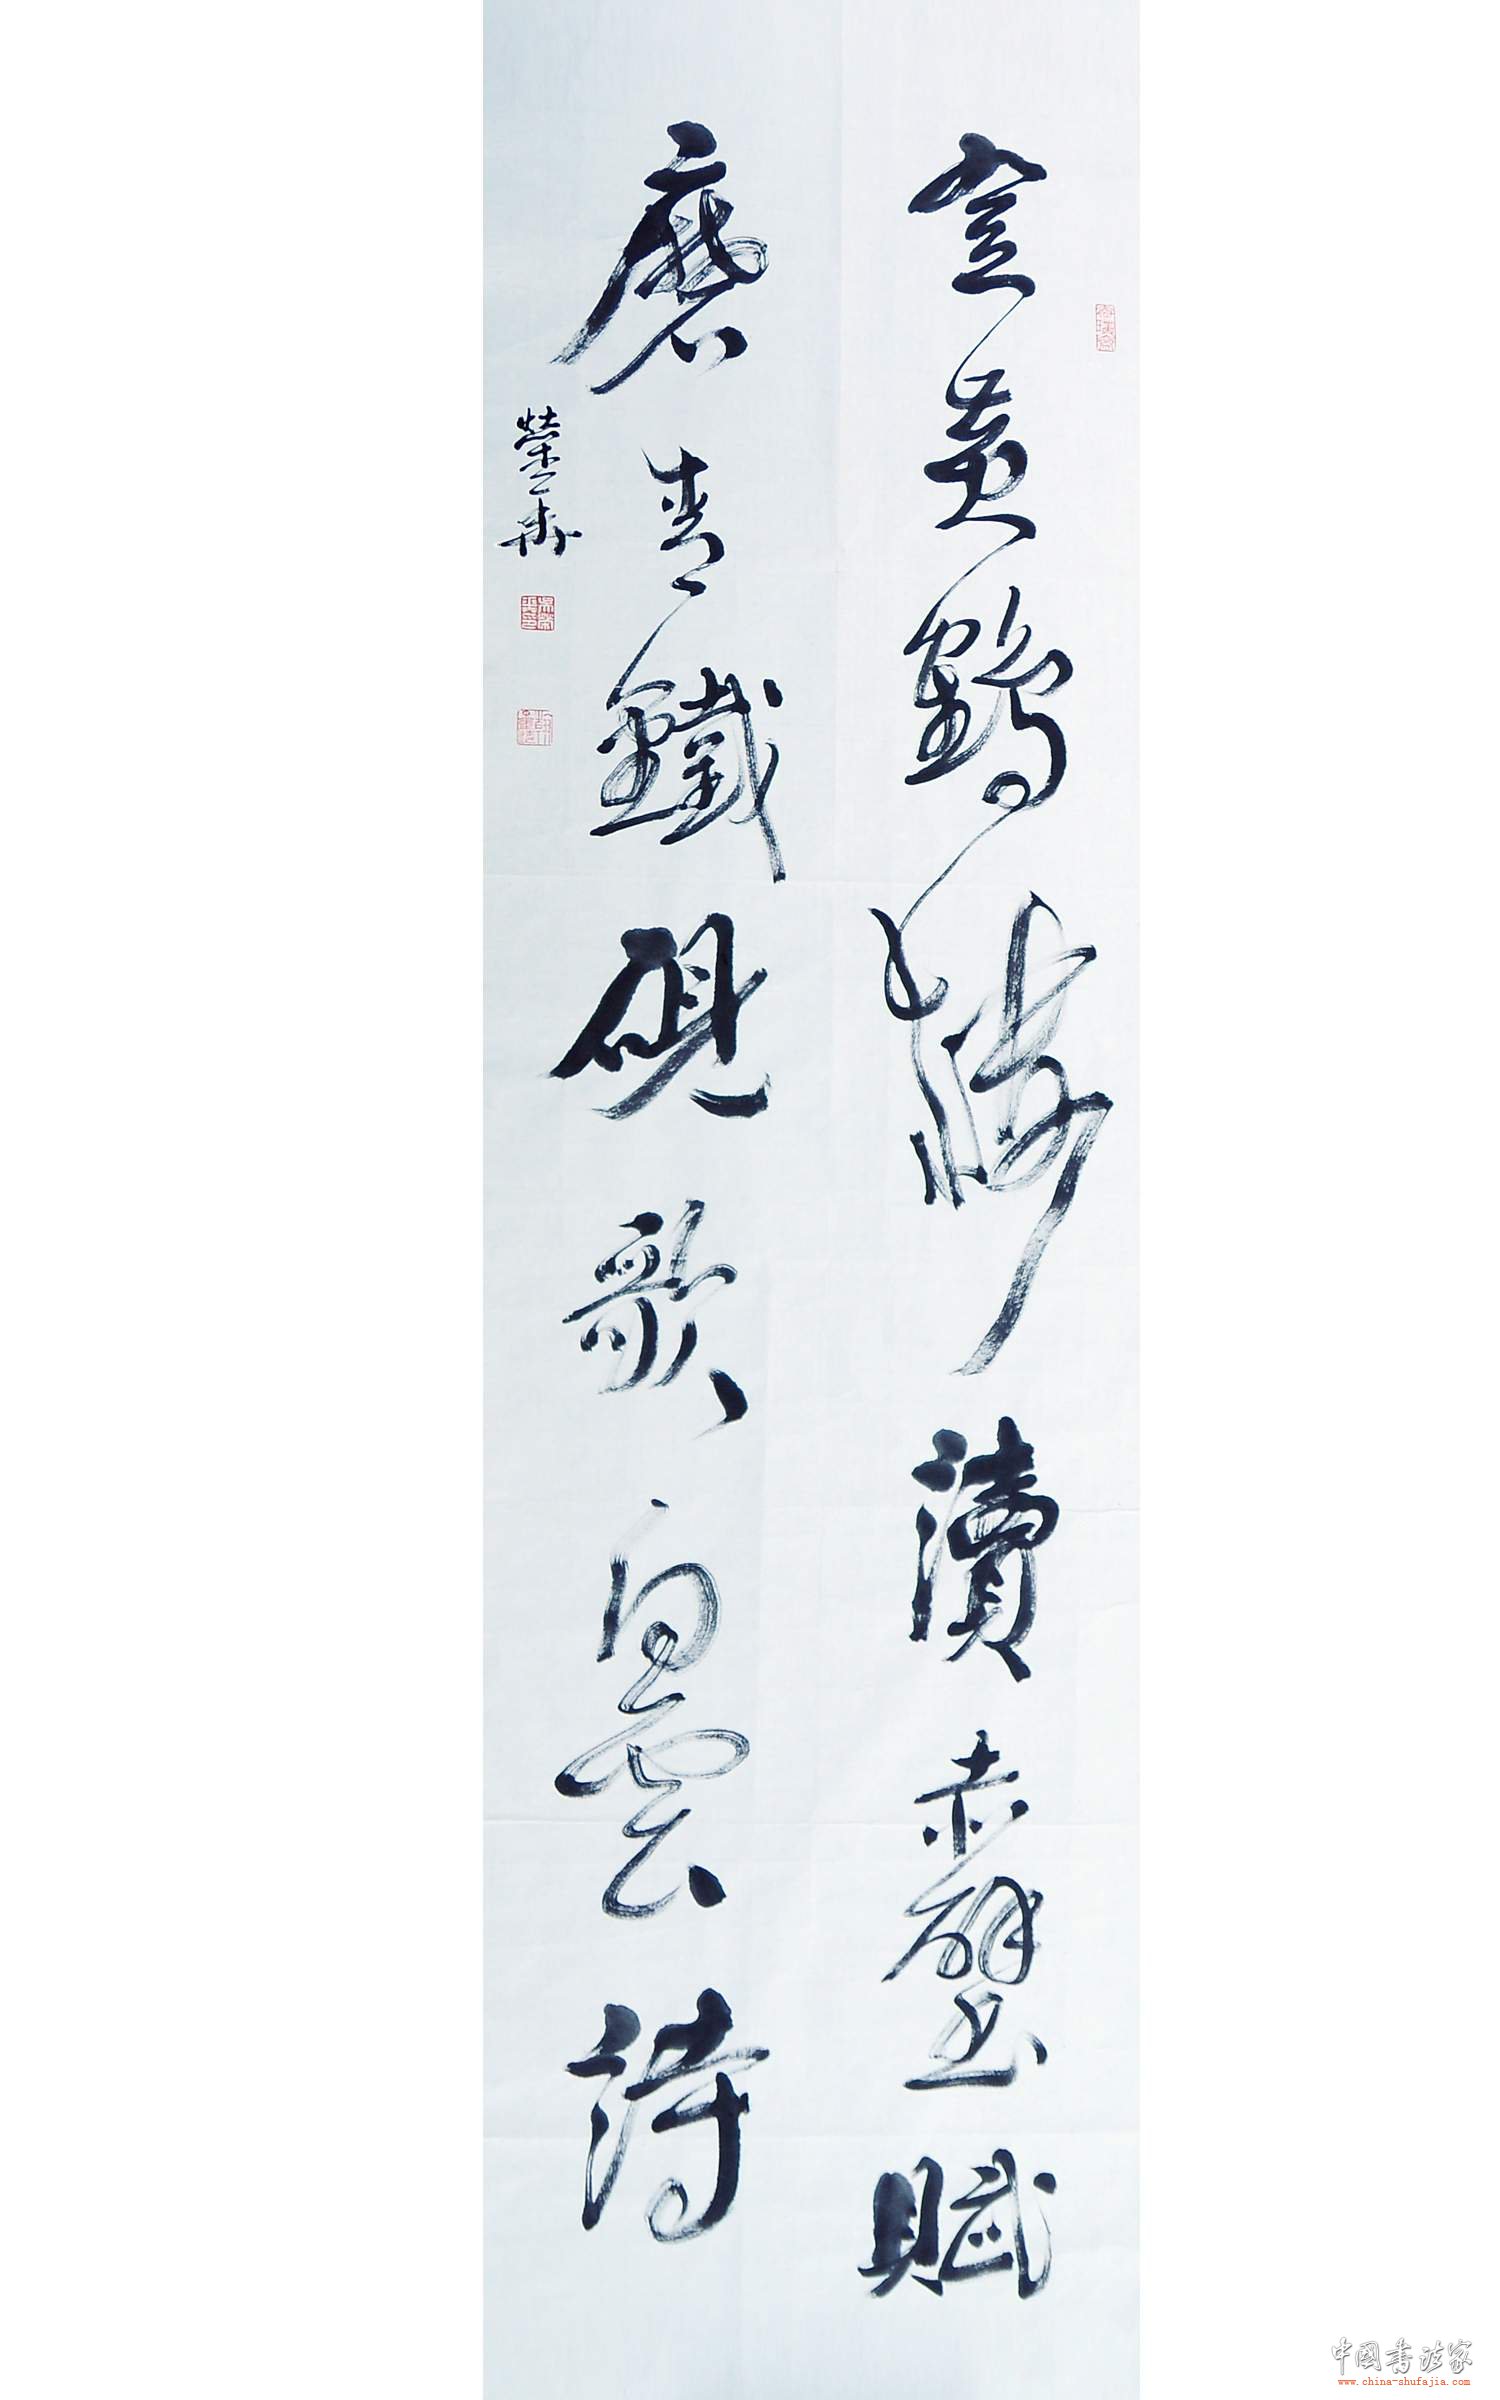 登黃鶴樓讀赤壁賦
磨青鐵硯歌白雲詩
榮
中國書法家
www.china-shufajia.com